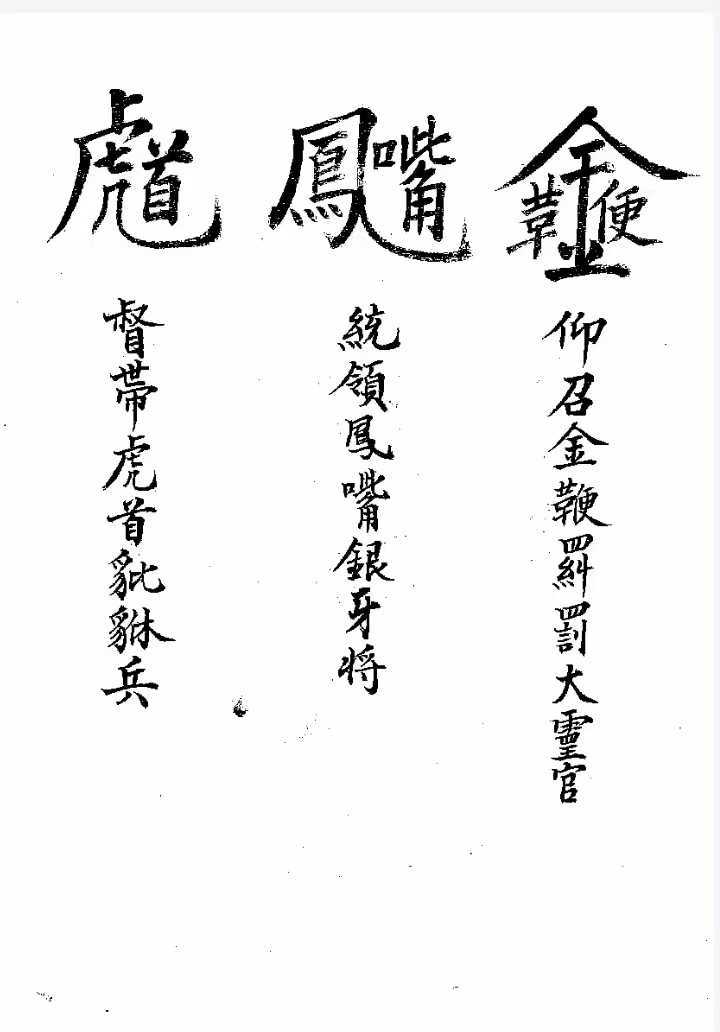 金鞭
仰召金鞭糾罰大靈官
鳳嘴
統領鳳嘴銀牙将
虎首
督帶虎首貔貅兵